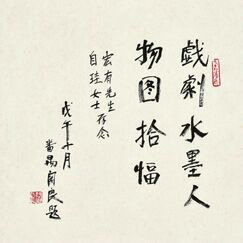 戲劇水墨人
物图拾幅
宏有先生
自珪女士存念
戊午十月
番禺關良題